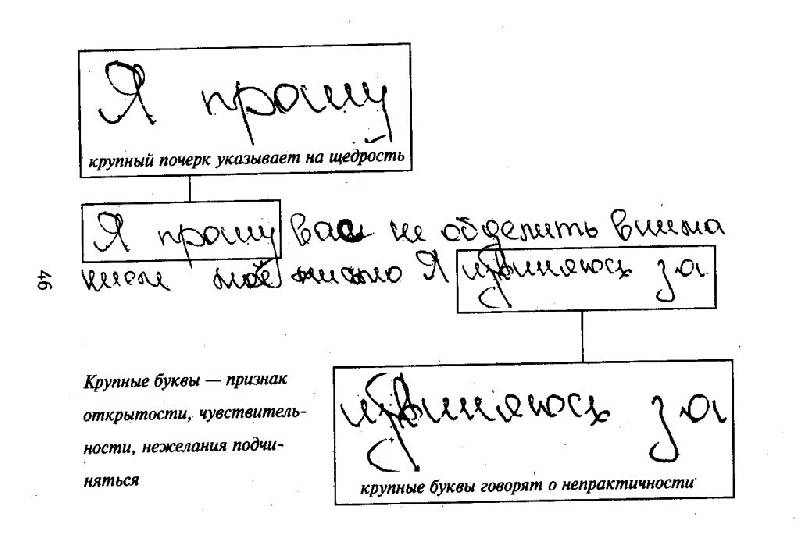 Я прошу
крупный почерк указывает на щедрость
Я прошу вас не обделить внима
нием моё письмо Я извиняюсь за
46
Крупные буквы — признак
открытости, чувствитель-
ности, нежелания подчи-
няться
извиняюсь за
крупные буквы говорят о непрактичности